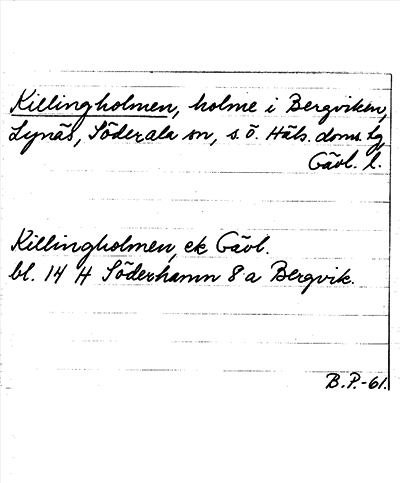 Killingholmen, holme i Bergviken,
Lynäs, Söderala sn, s.ö. Häls. doms. tg
Gävl. l.
Killingholmen, ek Gävl.
bl. 14 H Söderhamn 8 a Bergvik.
B.P.-61.